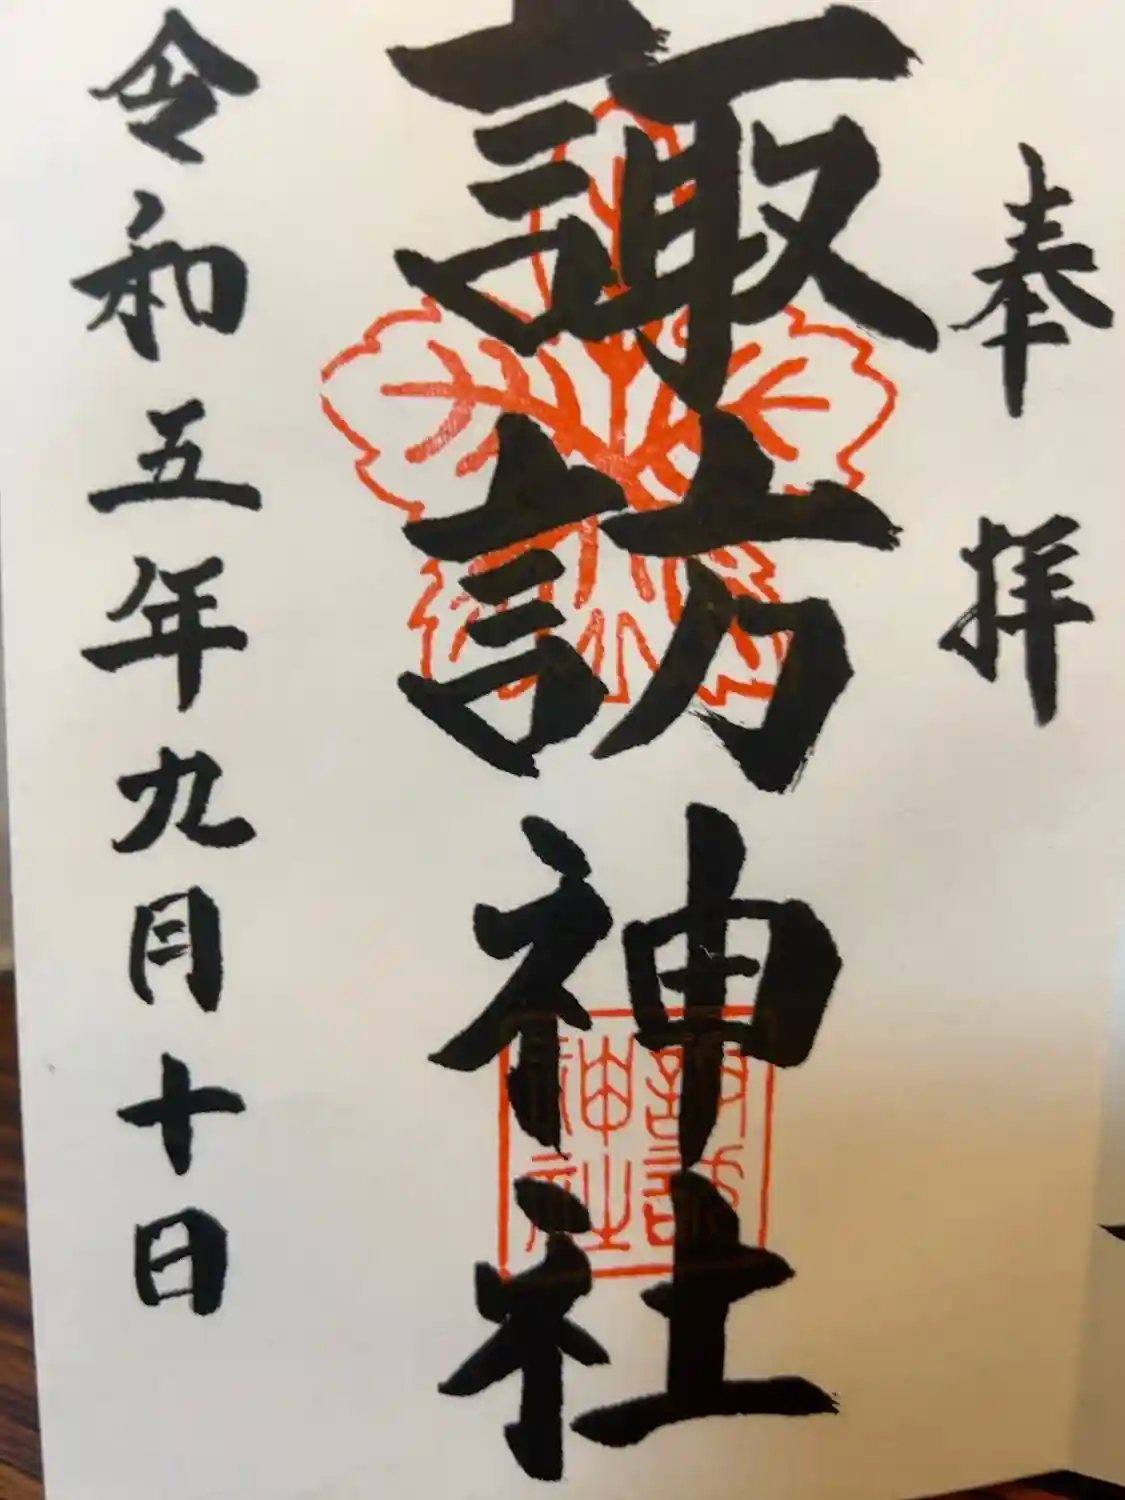 奉拝
諏訪神社
令和五年九月十日
諏訪神社